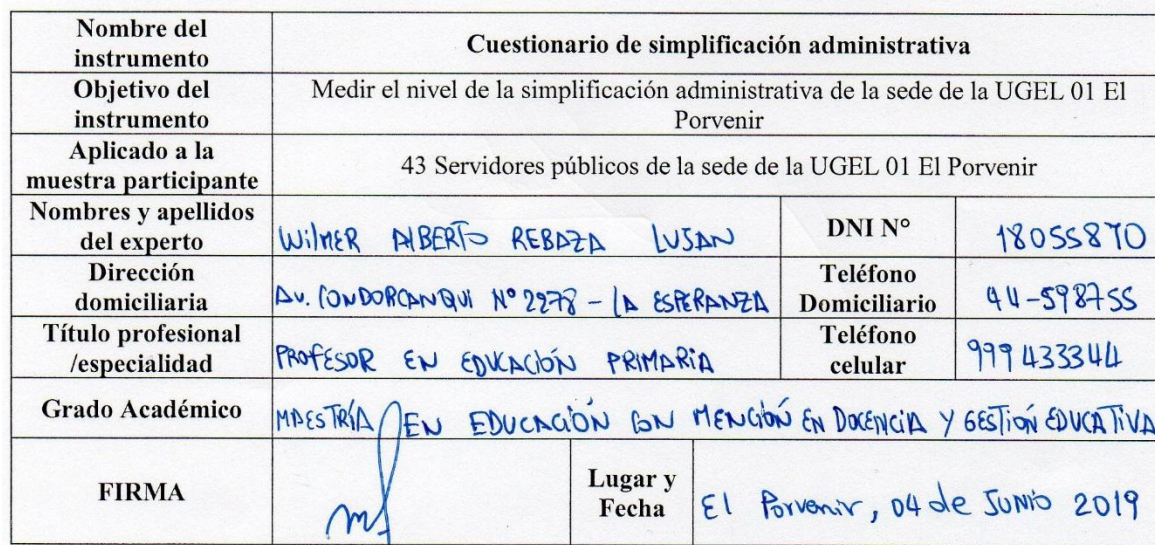 Nombre del
instrumento
Cuestionario de simplificación administrativa
Objetivo del
instrumento
Medir el nivel de la simplificación administrativa de la sede de la UGEL 01 El
Porvenir
Aplicado a la
muestra participante
43 Servidores públicos de la sede de la UGEL 01 El Porvenir
Nombres y apellidos
del experto
WilMER AlBERTO REBAZA LUJAN
DNI N°
18055870
Dirección
domiciliaria
Av. CONDORCANQUI N° 2278 - LA ESPERANZA
Teléfono
Domiciliario
44-598755
Título profesional
/especialidad
PROFESOR EN EDUCACIÓN PRIMARIA
Teléfono
celular
999433344
Grado Académico
MAESTRÍA EN EDUCACIÓN CON MENCIÓN EN DOCENCIA Y GESTIÓN EDUCATIVA
FIRMA
Lugar y
Fecha
El Porvenir, 04 de JUNIO 2019